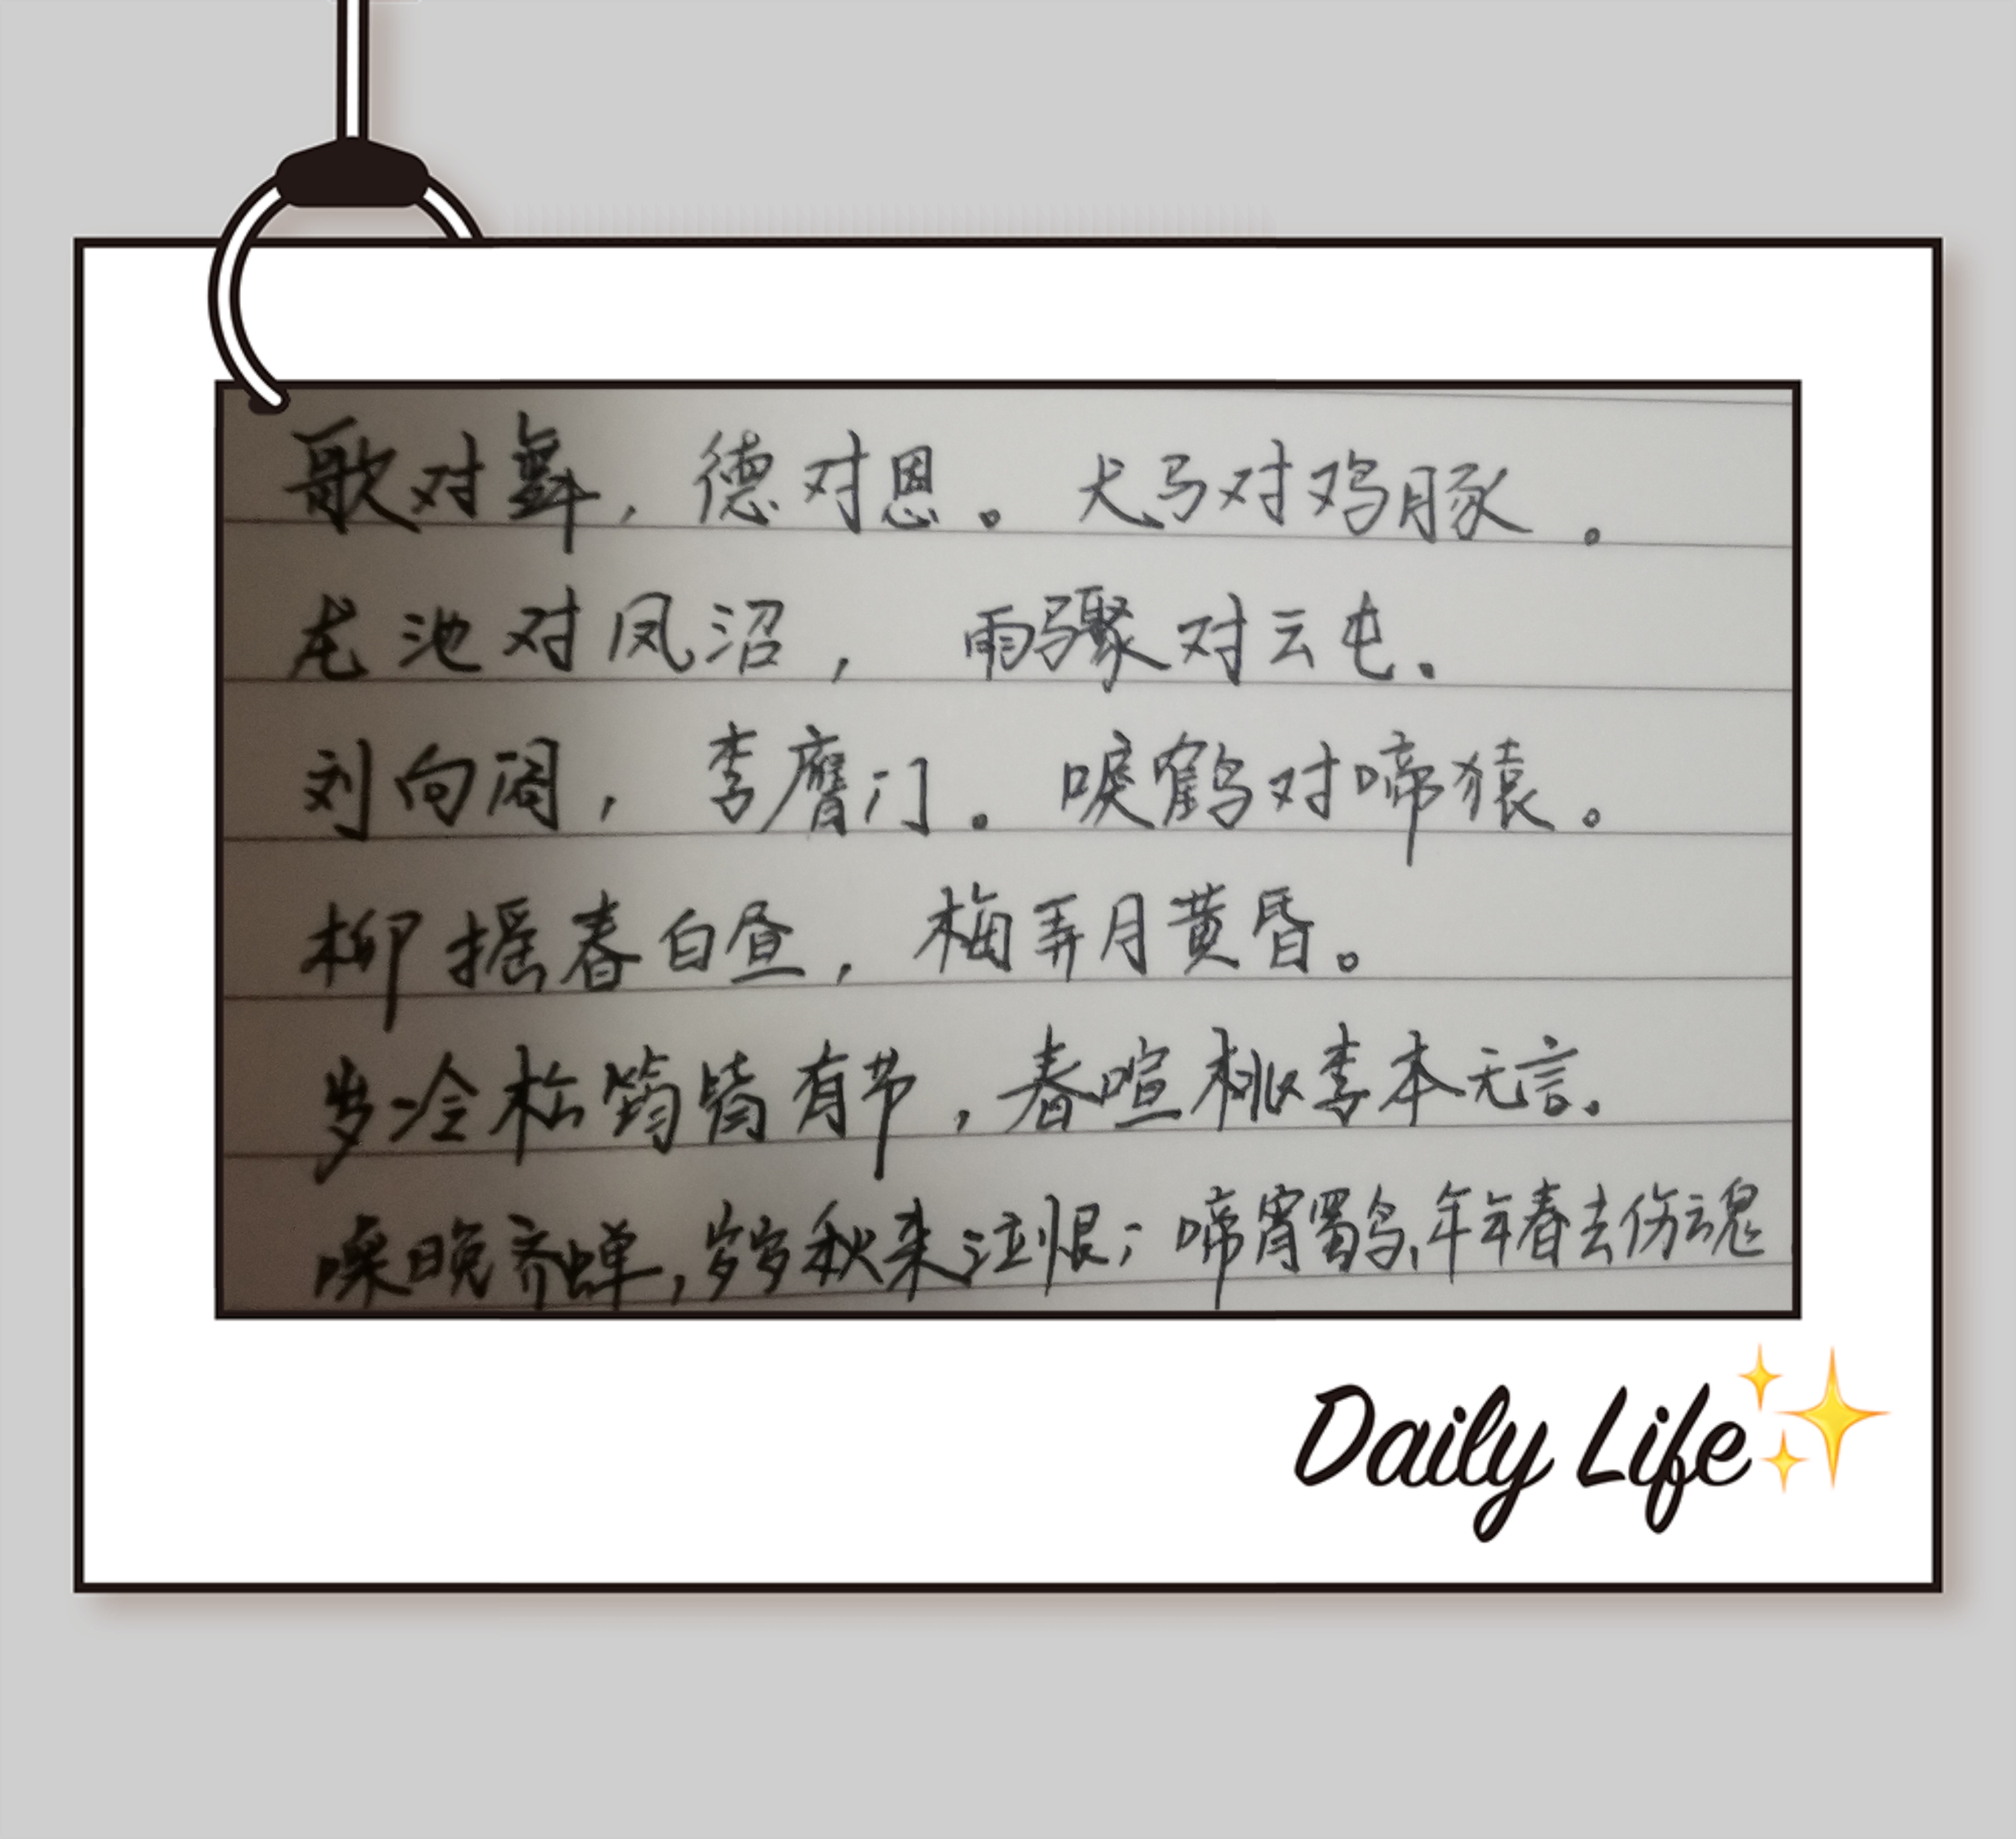 歌对舞，德对恩。犬马对鸡豚。
龙池对凤沼，雨骤对云屯。
刘向阁，李膺门。唳鹤对啼猿。
柳摇春白昼，梅弄月黄昏。
岁冷松筠皆有节，春喧桃李本无言。
噪晚齐蝉，岁岁秋来泣恨；啼宵蜀鸟，年年春去伤魂
Daily Life